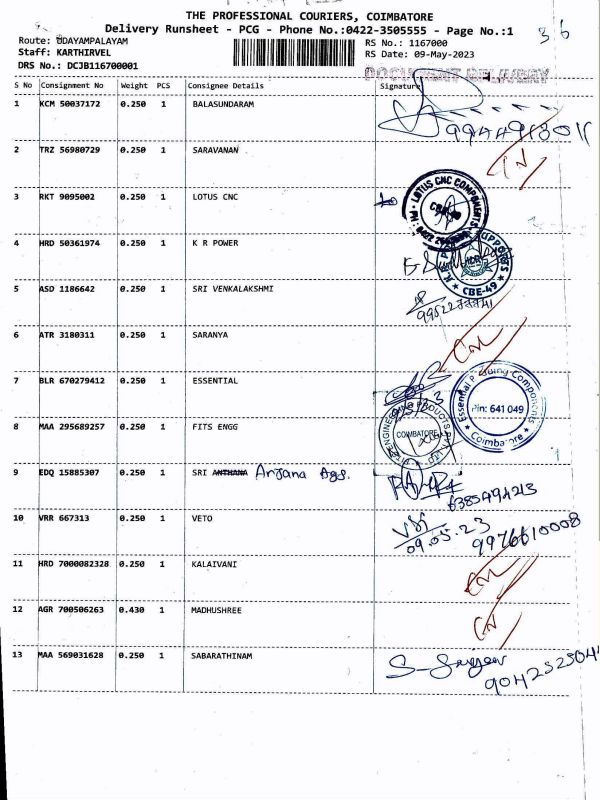 THE PROFESSIONAL COURIERS, COIMBATORE
Delivery Runsheet - PCG - Phone No.:0422-3505555 - Page No.:1
36
Route: UDAYAMPALAYAM
RS No.: 1167000
Staff: KARTHIRVEL
RS Date: 09-May-2023
DRS No.: DCJB116700001
DOCUMENT DELIVERY
S No Consignment No Weight PCS Consignee Details Signature
1 KCM 50037172 0.250 1 BALASUNDARAM
2 TRZ 56980729 0.250 1 SARAVANAN
3 RKT 9095002 0.250 1 LOTUS CNC
LOTUS CNC COMPONENTS
4 HRD 50361974 0.250 1 K R POWER
CBE-49
5 ASD 1186642 0.250 1 SRI VENKALAKSHMI
6 ATR 3180311 0.250 1 SARANYA
7 BLR 670279412 0.250 1 ESSENTIAL
Pin: 641 049
Coimbatore
8 MAA 295689257 0.250 1 FITS ENGG
COIMBATORE
9 EDQ 15885307 0.250 1 SRI ANTHANA Anjana Ags.
6385494213
10 VRR 667313 0.250 1 VETO
09.05.23
9976610008
11 HRD 7000082328 0.250 1 KALAIVANI
12 AGR 700506263 0.430 1 MADHUSHREE
13 MAA 569031628 0.250 1 SABARATHINAM